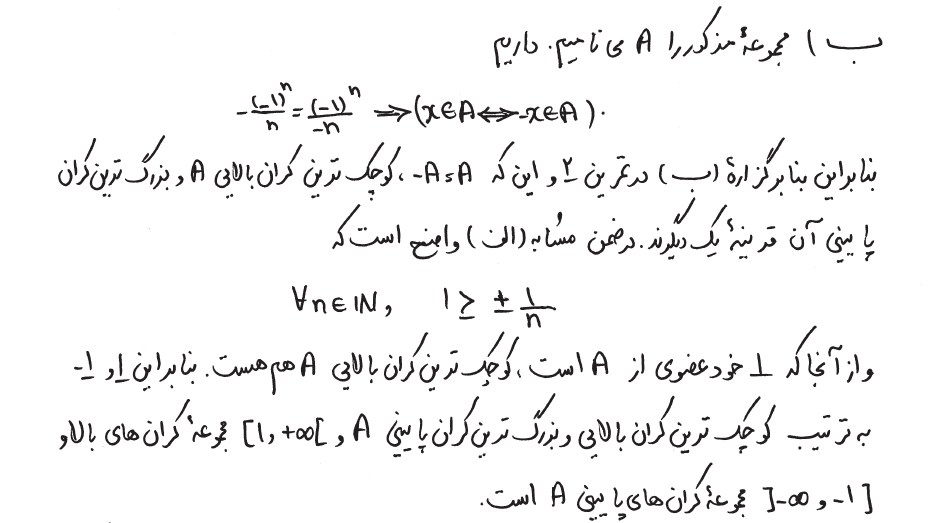 ب) مجموعهٔ مذکور را A می نامیم. داریم
-(-1)^n/n = (-1)^n/-n ⇒ (x∈A ⇔ -x∈A).
بنابراین بنابر گزارهٔ (ب) در تمرین ۲ و این که -A=A، کوچک ترین کران بالایی A و بزرگ ترین کران
پایینی آن قرینهٔ یک دیگرند. در ضمن مشابه (الف) واضح است که
∀n∈ℕ, 1 ≥ ± 1/n
و از آنجا که 1 خود عضوی از A است، کوچک ترین کران بالایی A هم هست. بنابراین 1 و -1
به ترتیب کوچک ترین کران بالایی و بزرگ ترین کران پایینی A و [1,+∞[ مجموعهٔ کران های بالا و
]-∞ و -1] مجموعهٔ کران های پایینی A است.